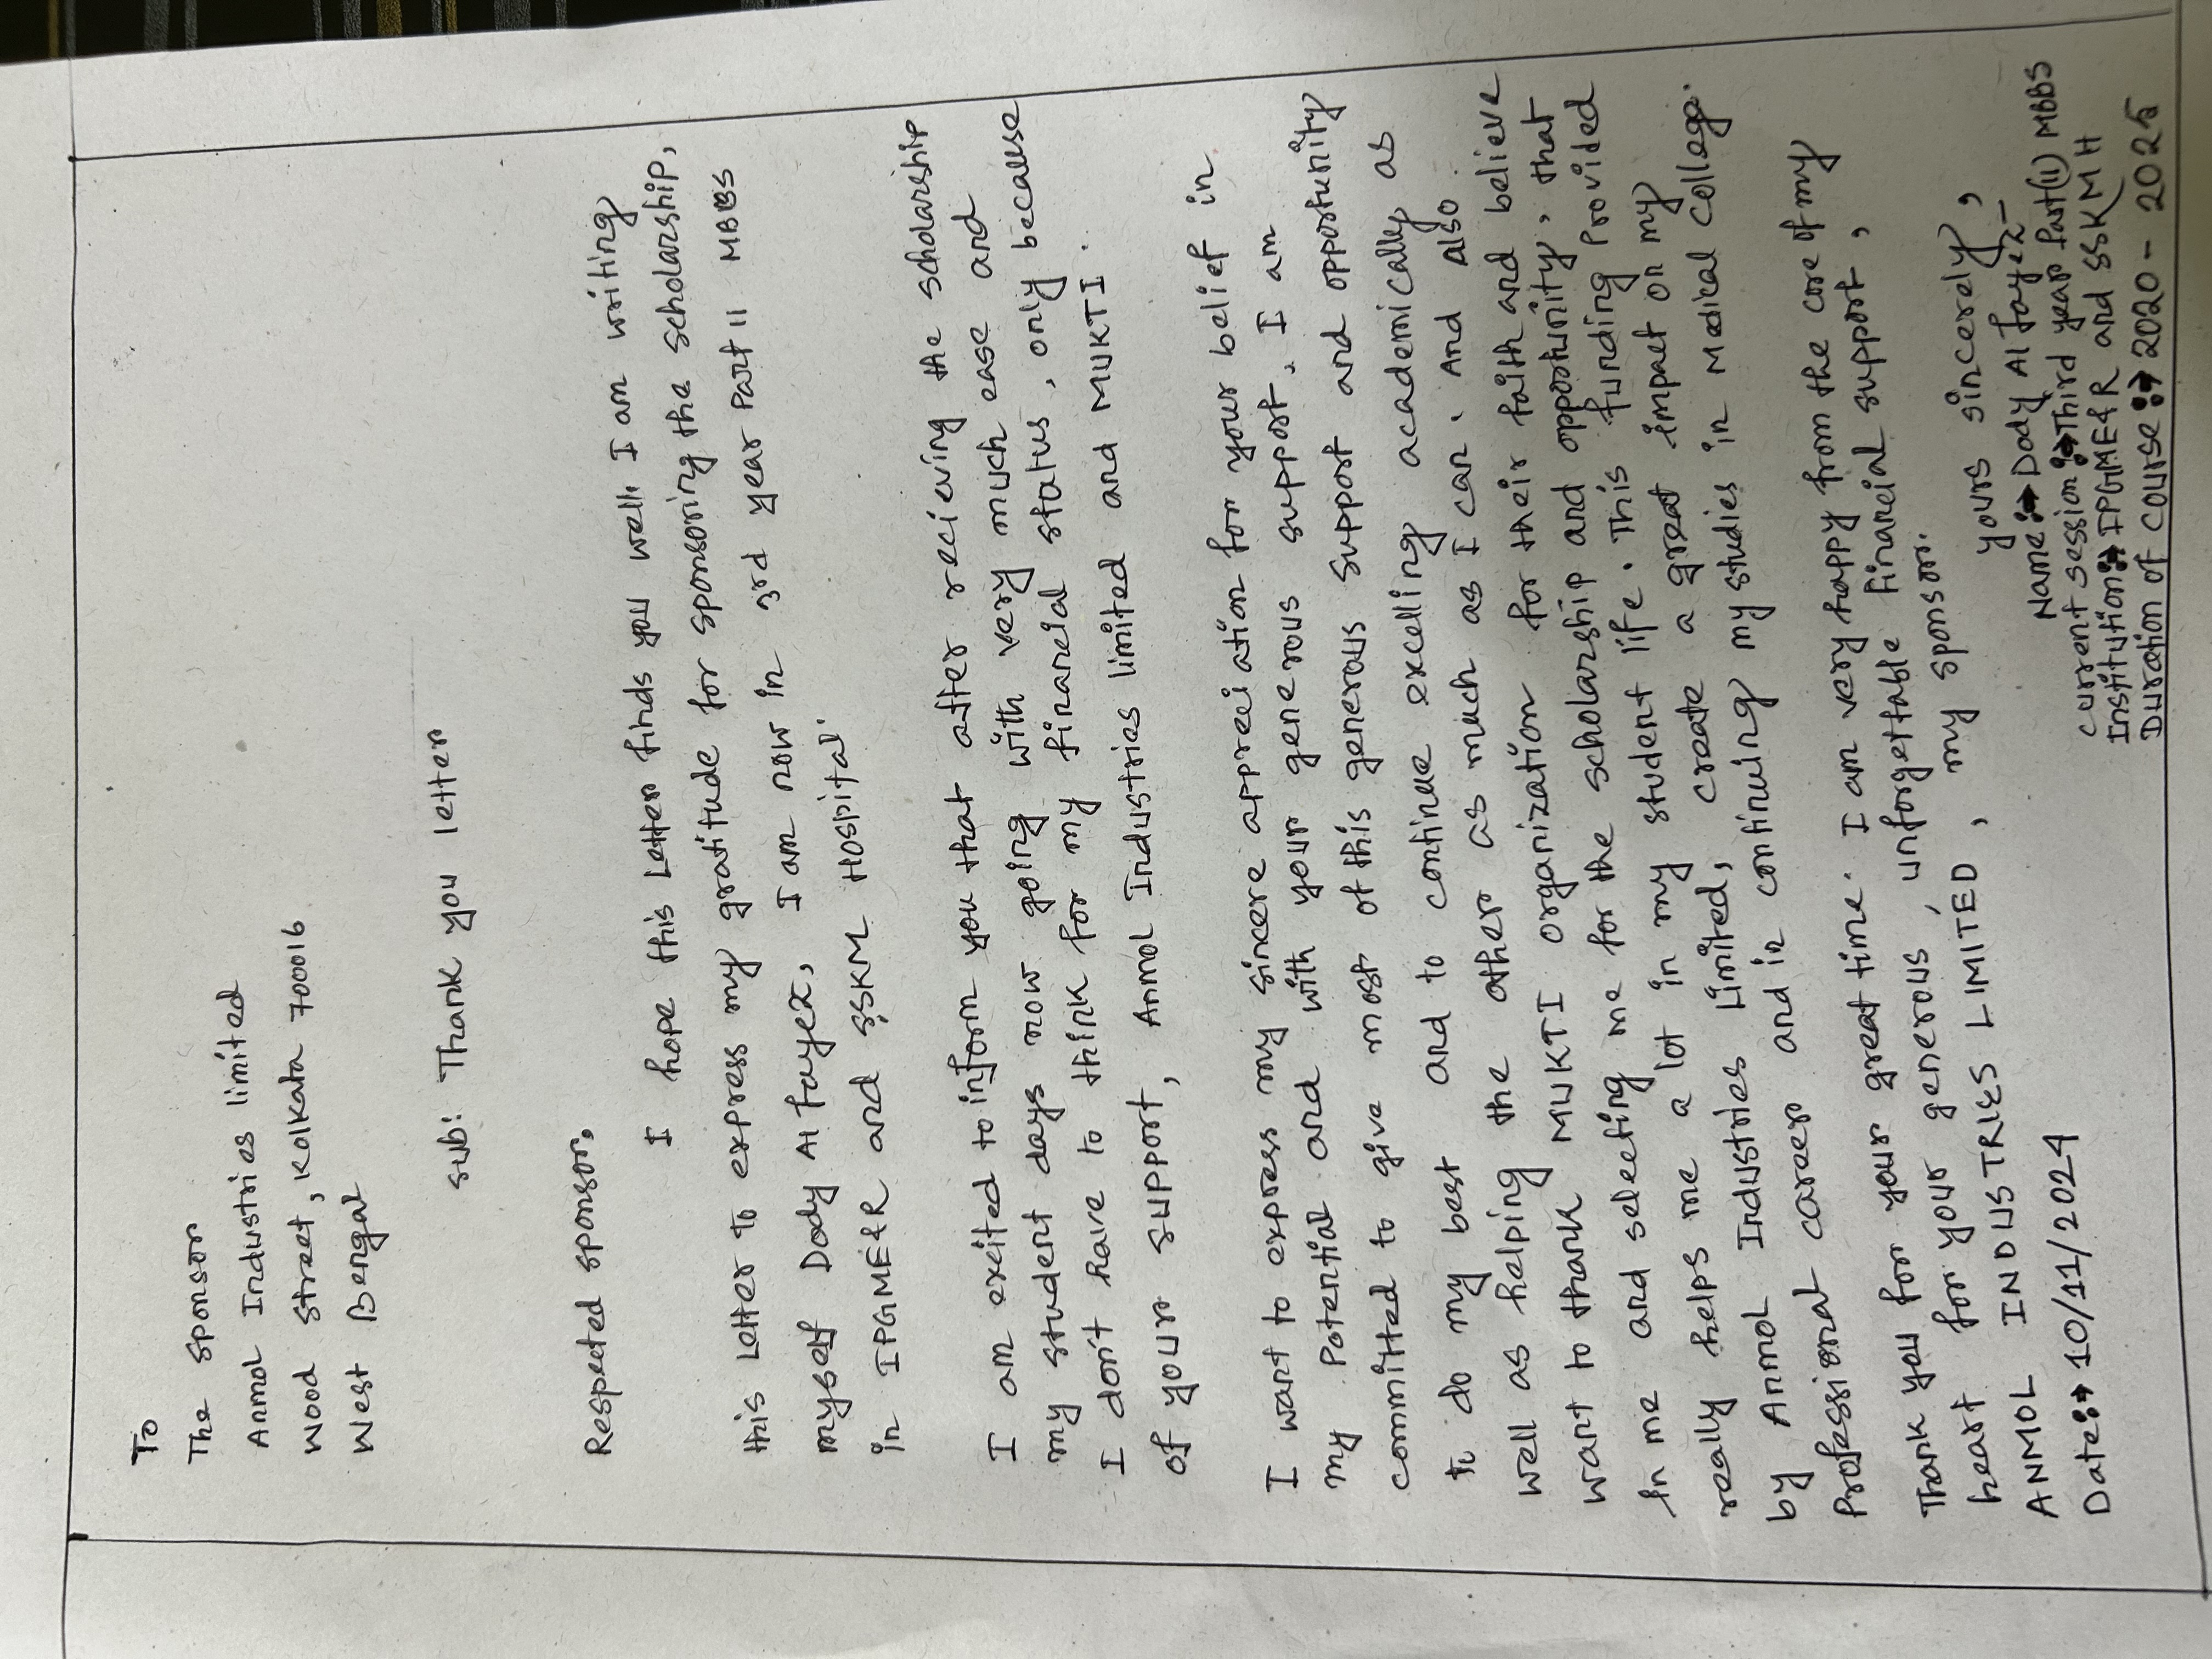 To
The sponsor
Anmol Industries limited
Wood street, Kolkata 700016
West Bengal
sub: Thank you letter
Respected sponsor,
I hope this Letter finds you well. I am writing
this Letter to express my gratitude for sponsoring the scholarship,
myself Dody Al fayez, I am now in 3rd year Part II MBBS
in IPGME&R and SSKM Hospital.
I am excited to inform you that after recieving the scholarship
my student days now going with very much ease and
I don't have to think for my financial status, only because
of your support, Anmol Industries limited and MUKTI.
I want to express my sincere appreciation for your belief in
my Potential and with your generous support. I am
committed to give most of this generous support and opportunity
to do my best and to continue excelling academically as
well as helping the other as much as I can. And also
want to thank MUKTI organization for their faith and believe
in me and selecting me for the scholarship and opportunity, that
really helps me a lot in my student life. This funding Provided
by Anmol Industries Limited, create a great impact on my
Professional career and in continuing my studies in Medical College.
Thank you for your great time. I am very happy from the core of my
heart for your generous, unforgettable financial support,
ANMOL INDUSTRIES LIMITED, my sponsor.
Date:→ 10/11/2024
yours sincerely,
Name:→ Dody Al fayez-
current session:→ Third year Part(II) MBBS
Institution:→ IPGME&R and SSKMH
Duration of course:→ 2020-2025